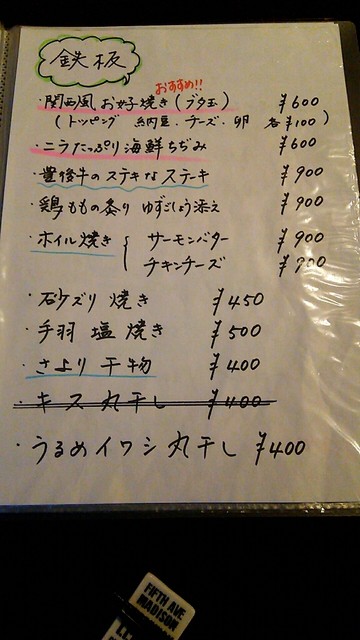 鉄板
おすすめ!!
・関西風 お好焼き(ブタ玉) ¥600
(トッピング 納豆、チーズ、卵 各¥100)
・ニラたっぷり海鮮ちぢみ ¥600
・豊後牛のステキなステーキ ¥900
・鶏ももの炙り ゆずごしょう添え ¥900
・ホイル焼き { サーモンバター ¥900
チキンチーズ ¥900
・砂ズリ焼き ¥450
・手羽塩焼き ¥500
・さより干物 ¥400
・キス丸干し ¥400
・うるめイワシ丸干し ¥400
FIFTH AVE
MADISON